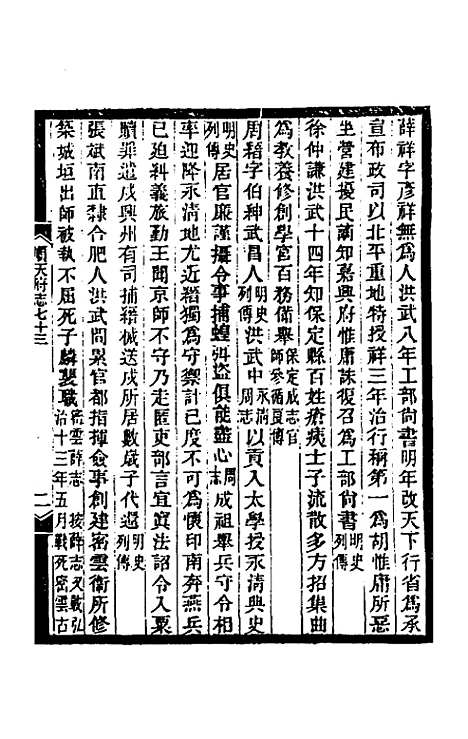 薛祥字彥祥無為人洪武八年工部尙書明年改天下行省爲承
宣布政司以北平重地特授祥三年治行稱第一爲胡惟庸所惡
坐營建擾民謫知嘉興府惟庸誅復召爲工部尙書明史列傳
徐仲謙洪武十四年知保定縣百姓瘡痍士子流散多方招集曲
爲敎養修創學宮百務備舉保定成志官師參循夏傳
周縉字伯紳武昌人明史列傳洪武中永淸周志以貢入太學授永淸典史
明史列傳居官廉謹攝令事捕蝗弭盜俱能盡心周志成祖舉兵守令相
率迎降永淸地尤近縉獨爲守禦計已度不可爲懷印南奔燕兵
已廹糾義旅勤王聞京師不守乃走匿吏部言宜寘法詔令入粟
贖罪遣戍興州有司捕縉械送戍所居數歲子代還明史列傳
張斌南直隸合肥人洪武間累官都指揮僉事創建密雲衞所修
築城垣出師被執不屈死子麟襲職密雲薛志 按薛志又載弘治十三年五月戰死密雲古
順天府志七十三
二